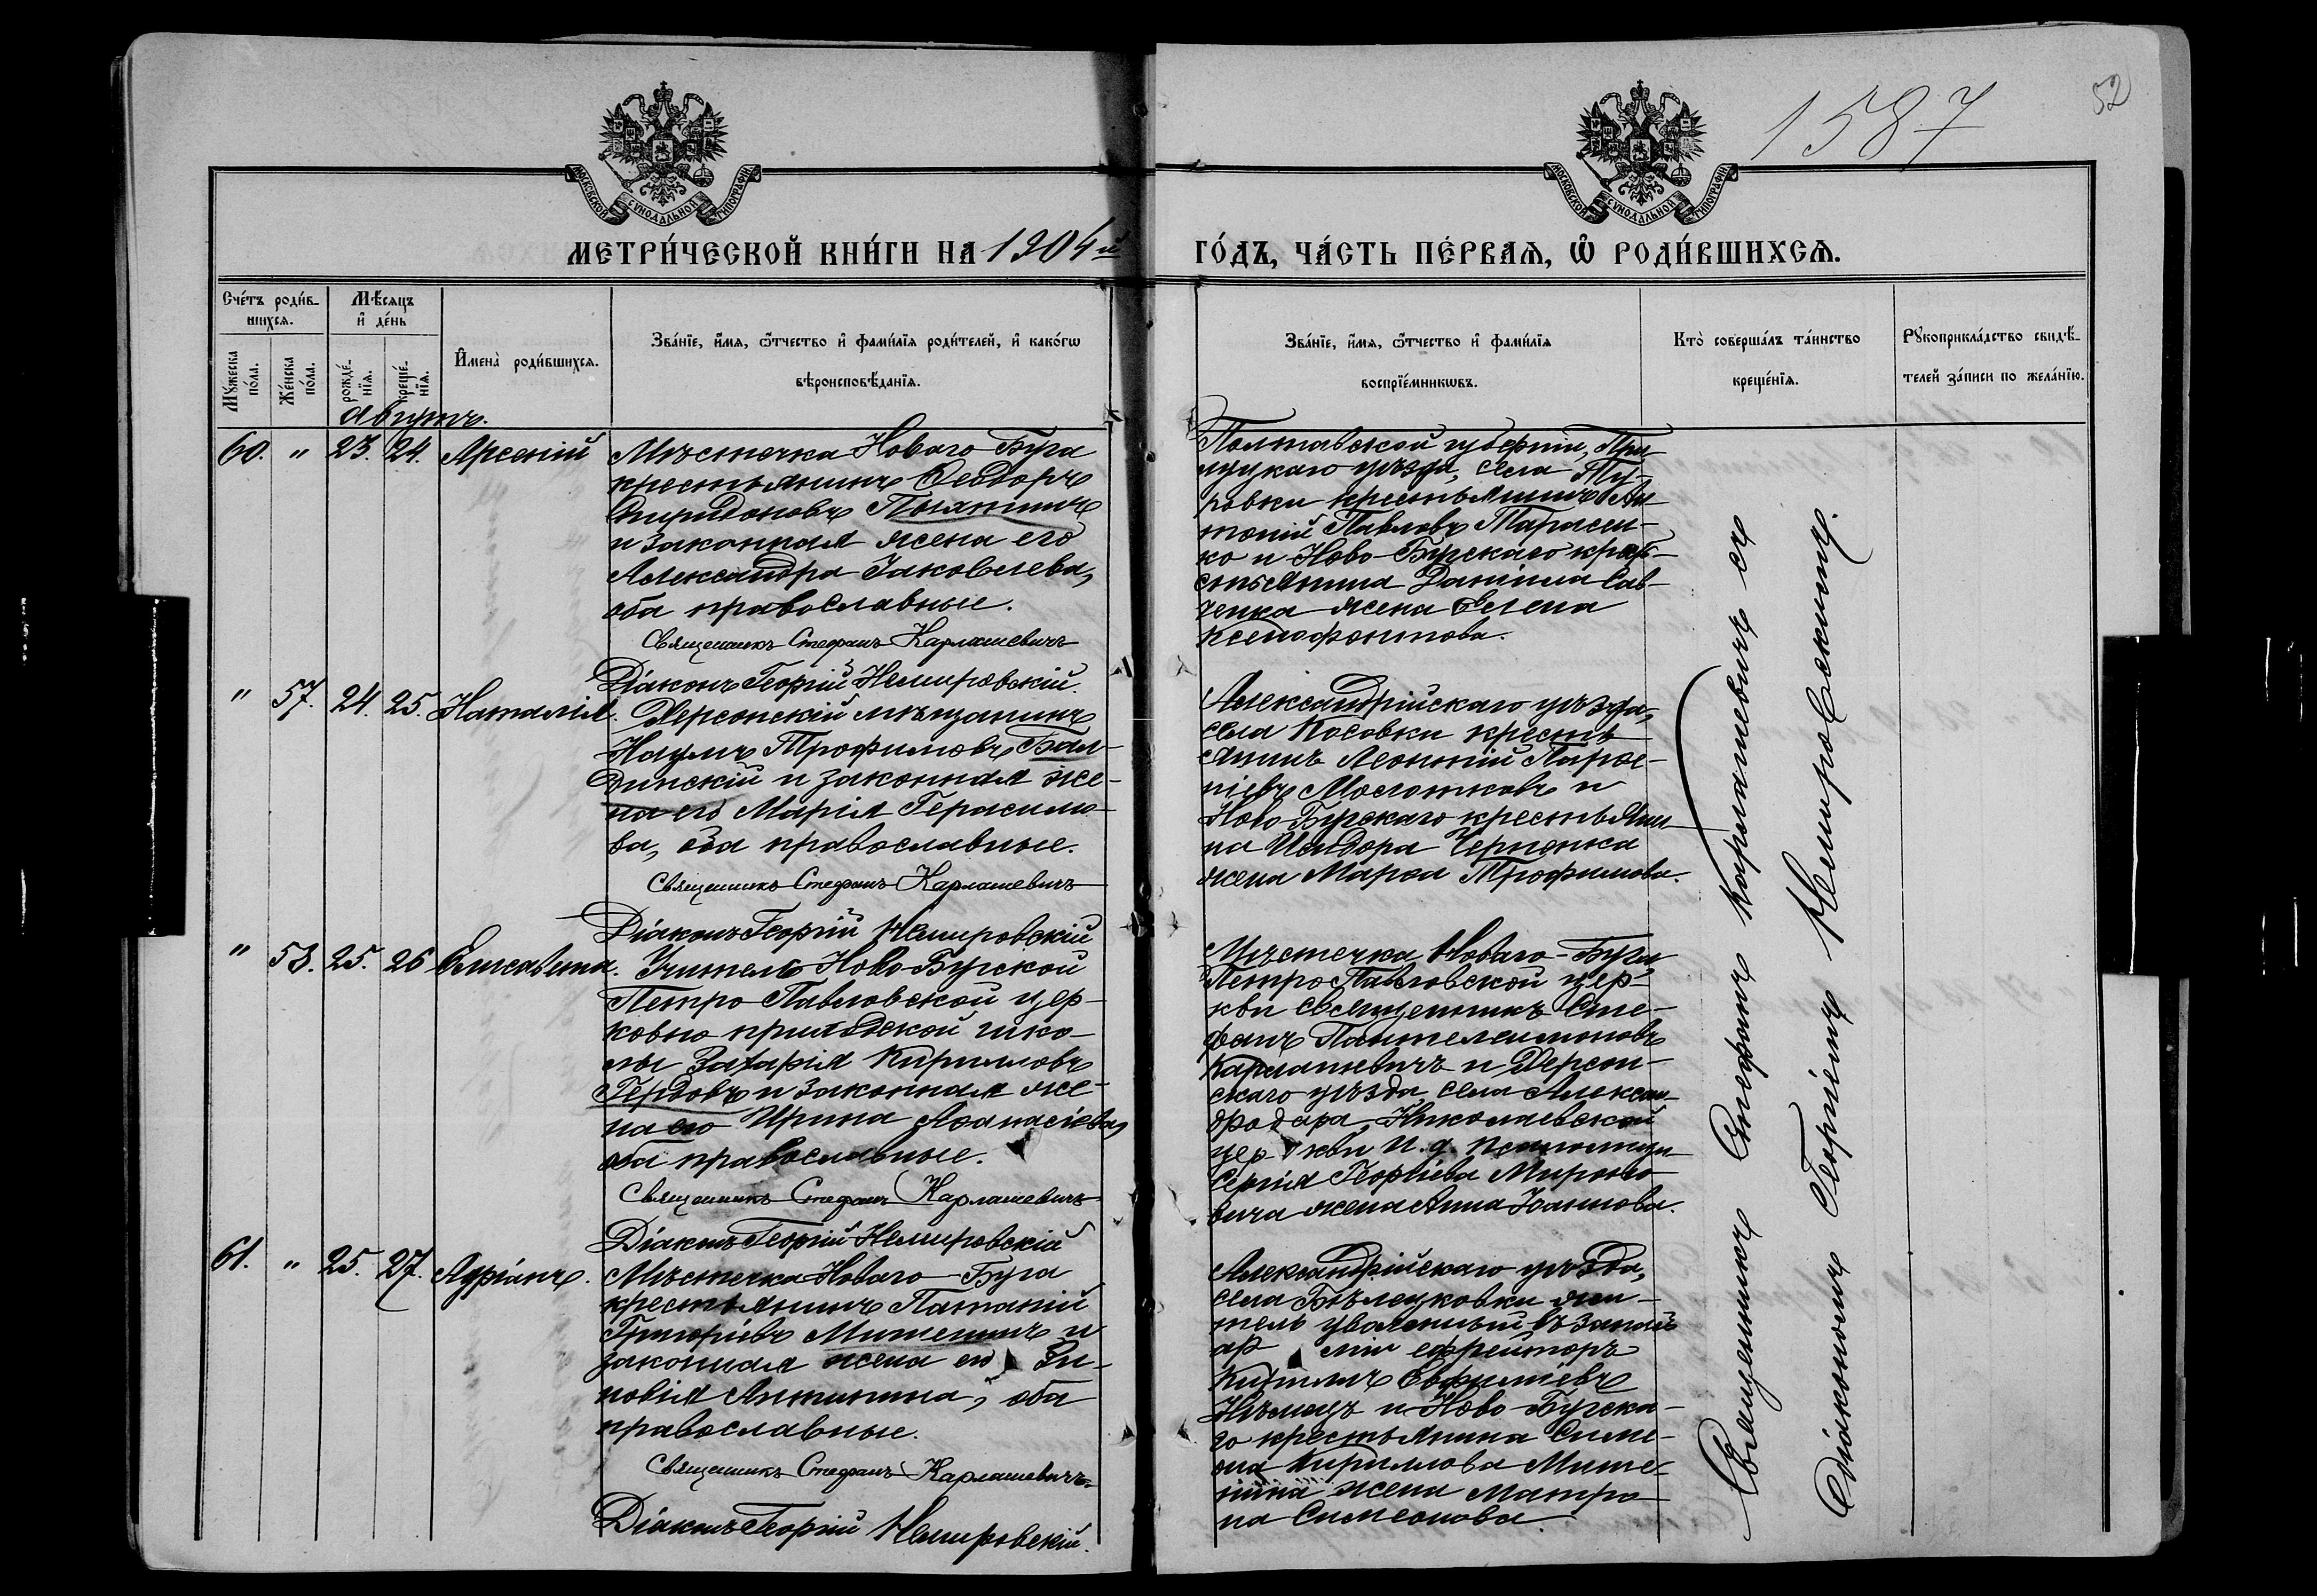 1587
52
МОСКОВСКОЙ СѴНОДАЛЬНОЙ ТИПОГРАФІИ
МОСКОВСКОЙ СѴНОДАЛЬНОЙ ТИПОГРАФІИ
МЕТРИ́ЧЕСКОЙ КНИ́ГИ НА 1904й
ГО́ДЪ, ЧА́СТЬ ПЕ́РВАѦ, Ѽ РОДИ́ВШИХСѦ.
Сче́тъ роди́в-
шихсѧ.
Мꙋ́жеска по́ла.
Же́нска по́ла.
Мѣ́сѧцъ
и҆ де́нь
рожде́-
нїѧ.
креще́-
нїѧ.
И҆мена̀ роди́вшихсѧ.
Зва́нїе, и҆́мѧ, ѻ҆́тчество и҆ фами́лїѧ роди́телей, и҆ како́гѡ
вѣроисповѣ́данїѧ.
Зва́нїе, и҆́мѧ, ѻ҆́тчество и҆ фами́лїѧ
воспрїе́мникѡвъ.
Кто̀ соверша́лъ та́инство
креще́нїѧ.
Рꙋкоприкла́дство свидѣ́-
телей за́писи по жела́нїю.
Августъ.
60. " 23. 24. Арсеній
Мѣстечка Новаго Буга
крестьянинъ Ѳеодоръ
Спиридоновъ
и законная жена его
Александра Іаковлева,
оба православные.
Священникъ Стефанъ Карлашевичъ
Діаконъ Георгій Немировскій.
Полтавской губерніи, При-
луцкаго уѣзда, села
ровки крестьянинъ Ан-
тоній Павловъ Тарасен-
ко и Ново-Бугскаго кре-
стьянина Даніила Сав-
ченка жена Елена
Ксенофонтова.
" 57. 24. 25. Наталія.
Херсонскій мѣщанинъ
Наумъ Трофимовъ Бал-
динскій и законная же-
на его Марія Герасимо-
ва, оба православные.
Священникъ Стефанъ Карлашевичъ
Діаконъ Георгій Немировскій
Александрійскаго уѣзда,
села Косовки кресть-
янинъ Леонтій Парѳе-
ніевъ Молотковъ и
Ново-Бугскаго крестьяни-
на Исидора Черненка
жена Марѳа Трофимова.
" 58. 25. 26 Елисавета.
Учитель Ново-Бугской
Петро-Павловской цер-
ковно приходской шко-
лы Захарія Кирилловъ
Гердовъ и законная же-
на его Ирина Аѳанасіева,
оба православные.
Священникъ Стефанъ Карлашевичъ
Діаконъ Георгій Немировскій
Мѣстечка Новаго-Буга
Петро Павловской цер-
кви священникъ Сте-
фанъ Пантелеимоновъ
Карлашевичъ и Херсон-
скаго уѣзда, села Алексан-
дродара, Николаевской
церкви и. д. псаломщи
Сергія Георгіева Мироно-
вича жена Анна Іоаннова.
61. " 25. 27. Адріанъ.
Мѣстечка Новаго-Буга
крестьянинъ Патапій
Григоріевъ Митенинъ и
законная жена его Зи-
новія Антипина, оба
православные.
Священникъ Стефанъ Карлашевичъ
Діаконъ Георгій Немировскій.
Александрійскаго уѣзда,
села Бѣлецковки жи-
тель уволенный въ запасъ
арміи ефрейторъ
Кириллъ Евфиміевъ
Нѣмецъ и Ново-Бугска-
го крестьянина Симе-
она Кириллова Мите-
нина жена Матро-
на Симеонова.
Священникъ Стефанъ Карлашевичъ съ
Діакономъ Георгіемъ Немировскимъ.